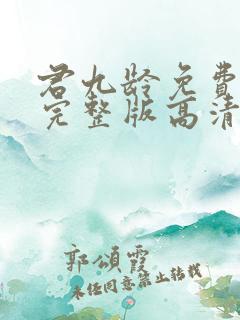 君九龄免费
完整版高清
郭頌霞
未经同意禁止转载